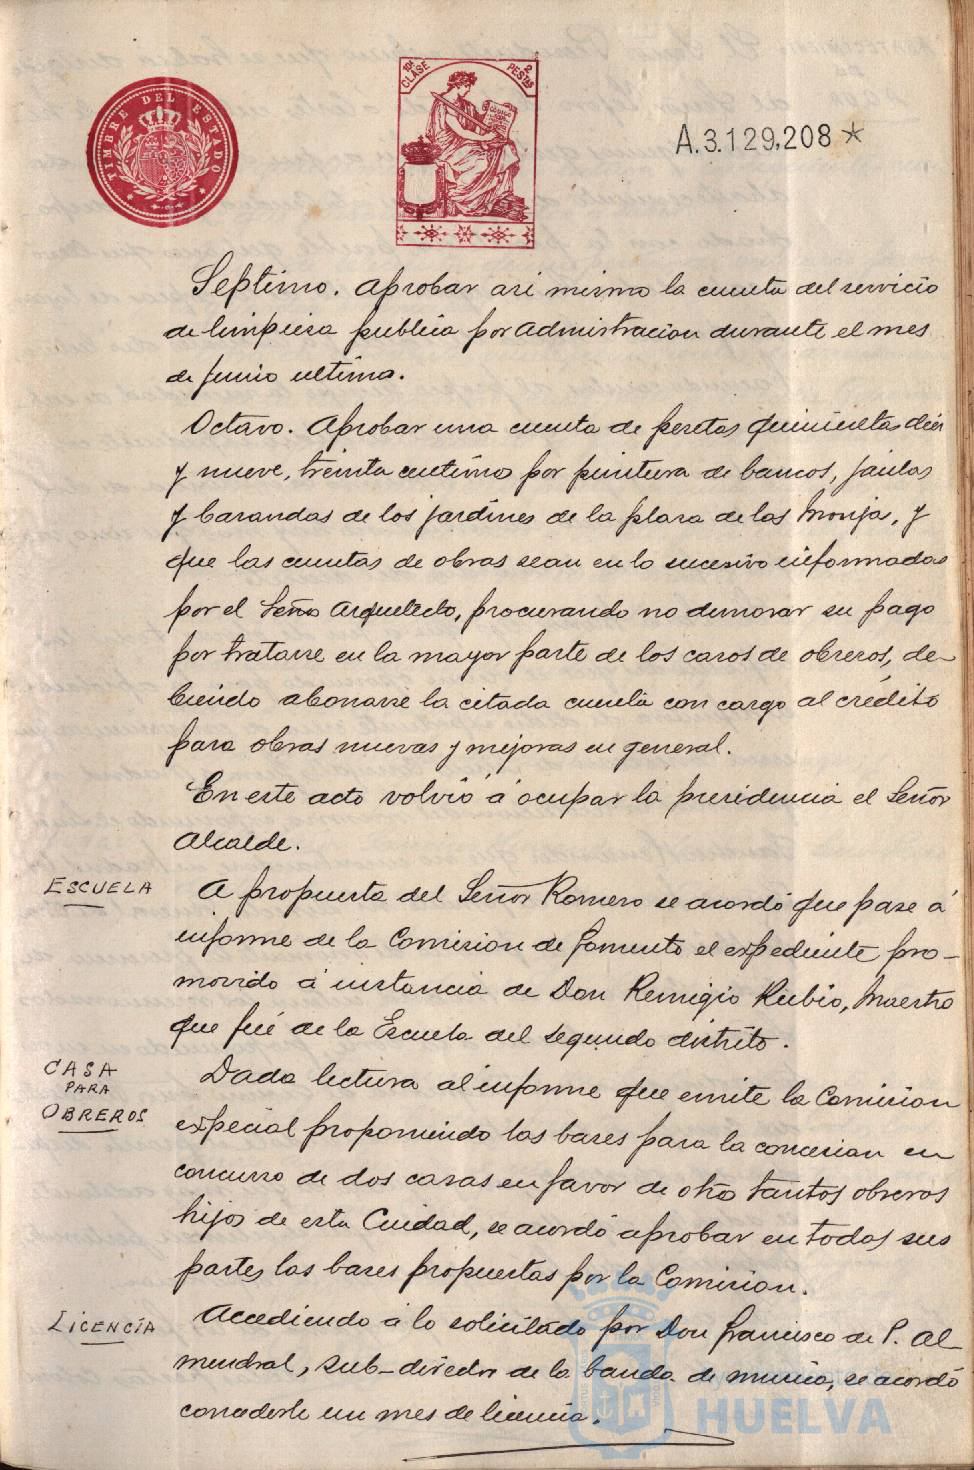 TIMBRE DEL ESTADO
10ª CLASE
2 PESETAS
A.3.129,208*
Septimo. Aprobar asi mismo la cuenta del servicio
de limpiesa publica por administracion durante el mes
de Junio ultimo.
Octavo. Aprobar una cuenta de pesetas quinientas diez
y nueve, treinta centimos por pintura de bancos, jaulas
y barandas de los jardines de la plaza de las Monjas, y
que las cuentas de obras sean en lo sucesivo informadas
por el Señor Arquitecto, procurando no demorar su pago
por tratarse en la mayor parte de los casos de obreros, de-
biendo abonarse la citada cuenta con cargo al crédito
para obras nuevas y mejoras en general.
En este acto volvió á ocupar la presidencia el Señor
Alcalde.
ESCUELA
A propuesta del Señor Romero se acordó que pase á
informe de la Comision de Fomento el expediente pro-
movido á instancia de Don Remigio Rubio, Maestro
que fué de la Escuela del segundo distrito.
CASA
PARA
OBREROS
Dada lectura al informe que emite la Comision
especial proponiendo las bases para la concesion en
concurso de dos casas en favor de otros tantos obreros
hijos de esta Ciudad, se acordó aprobar en todas sus
partes las bases propuestas por la Comision.
LICENCÍA
Accediendo á lo solicitado por Don Francisco de P. Al-
mendral, sub-director de la banda de musica, se acordó
concederle un mes de licencia.
HUELVA